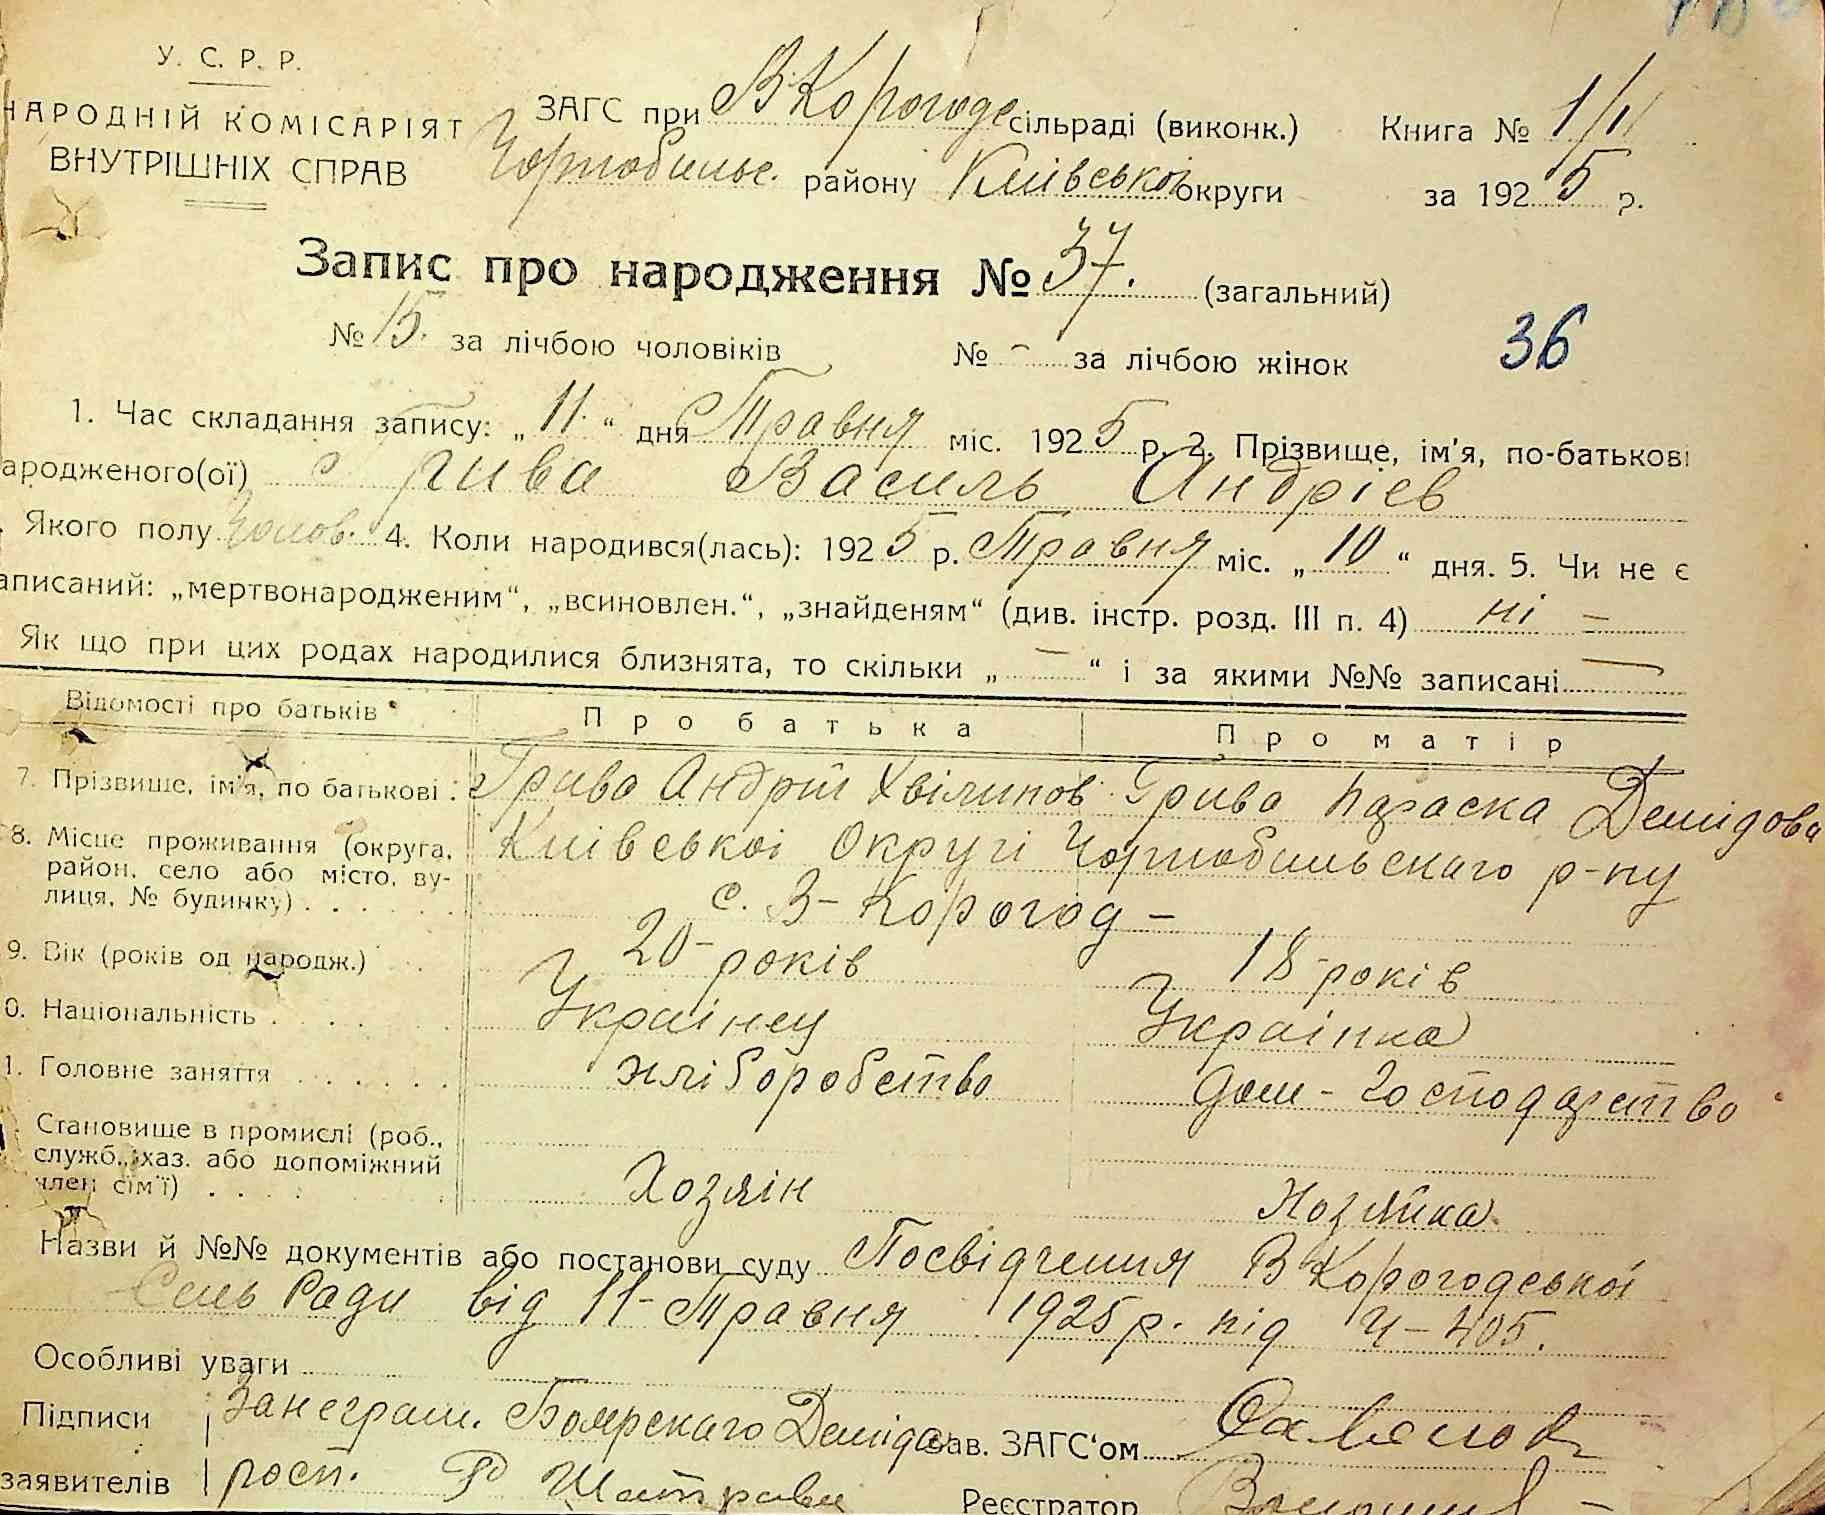 У. С. Р. Р.
НАРОДНІЙ КОМІСАРІЯТ
ВНУТРІШНІХ СПРАВ
ЗАГС при В Корогоде сільраді (виконк.) Книга № 1/II
Чорнобильс. району Київської округи за 1925 р.
Запис про народження № 37. (загальний)
№ 15. за лічбою чоловіків № - за лічбою жінок 36
1. Час складання запису: „ 11. “ дня Травня міс. 1925 р. 2. Прізвище, ім'я, по-батькові
ародженого(ої) Грива Василь Андріев
. Якого полу Чолов. 4. Коли народився(лась): 1925 р. Травня міс. „ 10 “ дня. 5. Чи не є
аписаний: „мертвонародженим“, „всиновлен.“, „знайденям“ (див. інстр. розд. III п. 4) ні =
Як що при цих родах народилися близнята, то скільки „ — “ і за якими №№ записані —
Відомості про батьків Про батька Про матір
7. Прізвище, ім'я, по батькові: Грива Андрій Хвілипов Грива Параска Демідова
8. Місце проживання (округа, Київської Округі Чорнобильскаго р-ну
район, село або місто, ву- с. В-Корогод -
лиця, № будинку) . . . . . .
9. Вік (років од народж.) . . 20-років 18-років
0. Національність . . . . Українец Українка
1. Головне заняття . . . . . . хліборобство дом-господарство
Становище в промислі (роб.,
служб., хаз. або допоміжний
член сім'ї) . . . . . . Хозяін Хозяйка
Назви й №№ документів або постанови суду Посвідчення В Корогодської
Сель Ради від 11-Травня 1925 р. під Ч-405.
Особливі уваги
Підписи За неграм. Боярскаго Деміда зав. ЗАГС‘ом
заявителів росп. Реєстратор